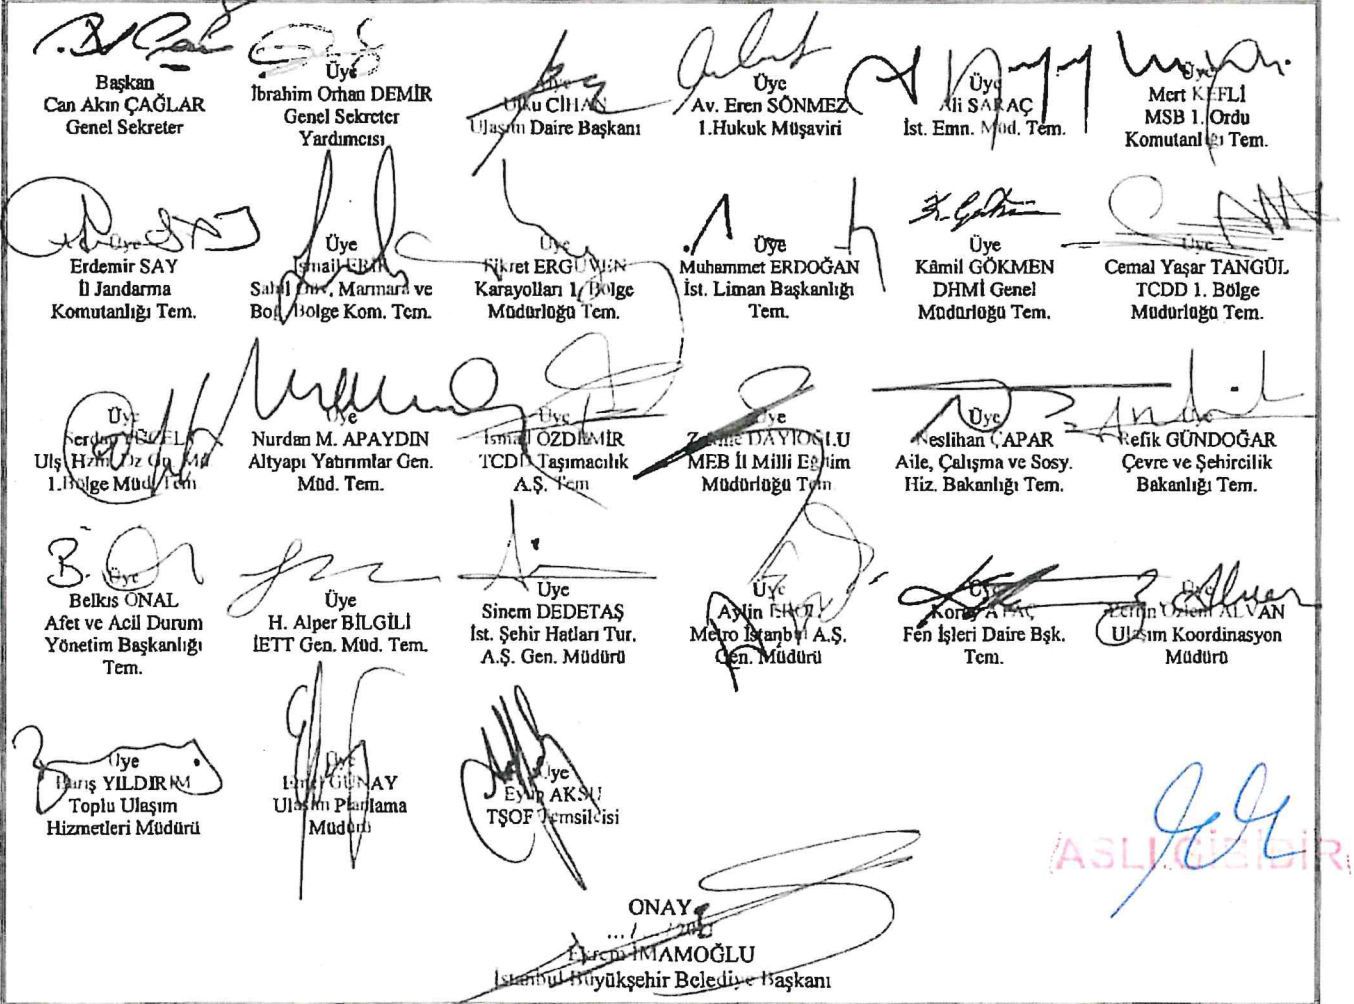 Başkan
Can Akın ÇAĞLAR
Genel Sekreter
Üye
İbrahim Orhan DEMİR
Genel Sekreter
Yardımcısı
Üye
Utku CİHAN
Ulaşım Daire Başkanı
Üye
Av. Eren SÖNMEZ
1.Hukuk Müşaviri
Üye
Ali SARAÇ
İst. Emn. Müd. Tem.
Üye
Mert KEFLİ
MSB 1. Ordu
Komutanlığı Tem.
Üye
Erdemir SAY
İl Jandarma
Komutanlığı Tem.
Üye
İsmail
Marmara ve
Boğ. Bölge Kom. Tem.
Üye
Fikret ERGÜVEN
Karayolları 1. Bölge
Müdürlüğü Tem.
Üye
Muhammet ERDOĞAN
İst. Liman Başkanlığı
Tem.
Üye
Kâmil GÖKMEN
DHMİ Genel
Müdürlüğü Tem.
Üye
Cemal Yaşar TANGÜL
TCDD 1. Bölge
Müdürlüğü Tem.
Üye
Serdar YÜCEL
Ulş. Hzm.
1.Bölge Müd. Tem
Üye
Nurdan M. APAYDIN
Altyapı Yatırımlar Gen.
Müd. Tem.
Üye
İsmail ÖZDEMİR
TCDD Taşımacılık
A.Ş. Tem
Üye
DAYIOĞLU
MEB İl Milli Eğitim
Müdürlüğü Tem
Üye
Neslihan ÇAPAR
Aile, Çalışma ve Sosy.
Hiz. Bakanlığı Tem.
Üye
Refik GÜNDOĞAR
Çevre ve Şehircilik
Bakanlığı Tem.
Üye
Belkıs ÖNAL
Afet ve Acil Durum
Yönetim Başkanlığı
Tem.
Üye
H. Alper BİLGİLİ
İETT Gen. Müd. Tem.
Üye
Sinem DEDETAŞ
İst. Şehir Hatları Tur.
A.Ş. Gen. Müdürü
Üye
Aylin
Metro İstanbul A.Ş.
Gen. Müdürü
Üye
Koray ATAÇ
Fen İşleri Daire Bşk.
Tem.
Üye
ALVAN
Ulaşım Koordinasyon
Müdürü
Üye
Barış YILDIRIM
Toplu Ulaşım
Hizmetleri Müdürü
Üye
GÜNAY
Ulaşım Planlama
Müdürü
Üye
Eyüp AKSU
TŞOF Temsilcisi
ASLI GİBİDİR
ONAY
Ekrem İMAMOĞLU
İstanbul Büyükşehir Belediye Başkanı